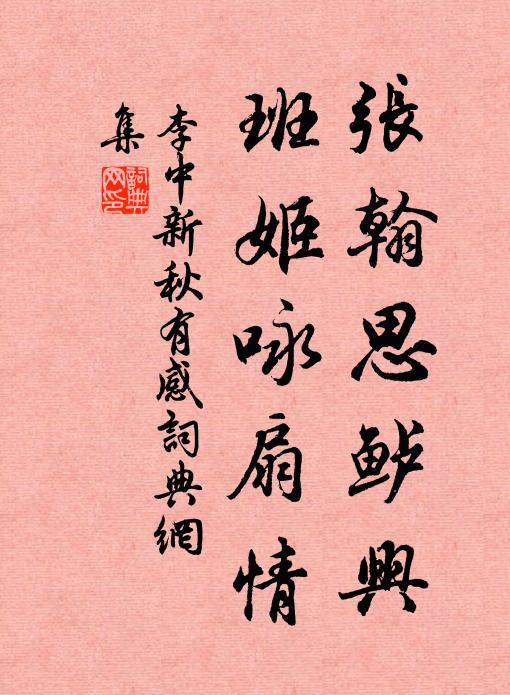 張翰思鲈興
班姬咏扇情
李中新秋有感詞典網
集
詞典
网印